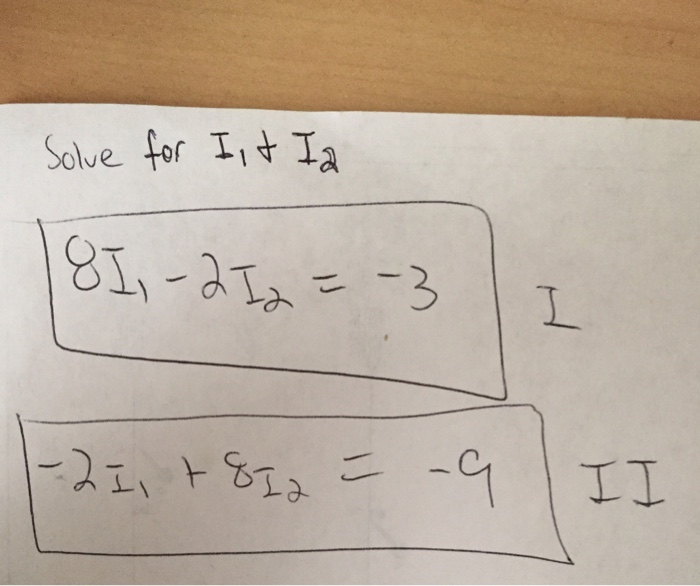 Solve for I₁ + I₂
8I₁ - 2I₂ = -3
I
-2I₁ + 8I₂ = -9
II